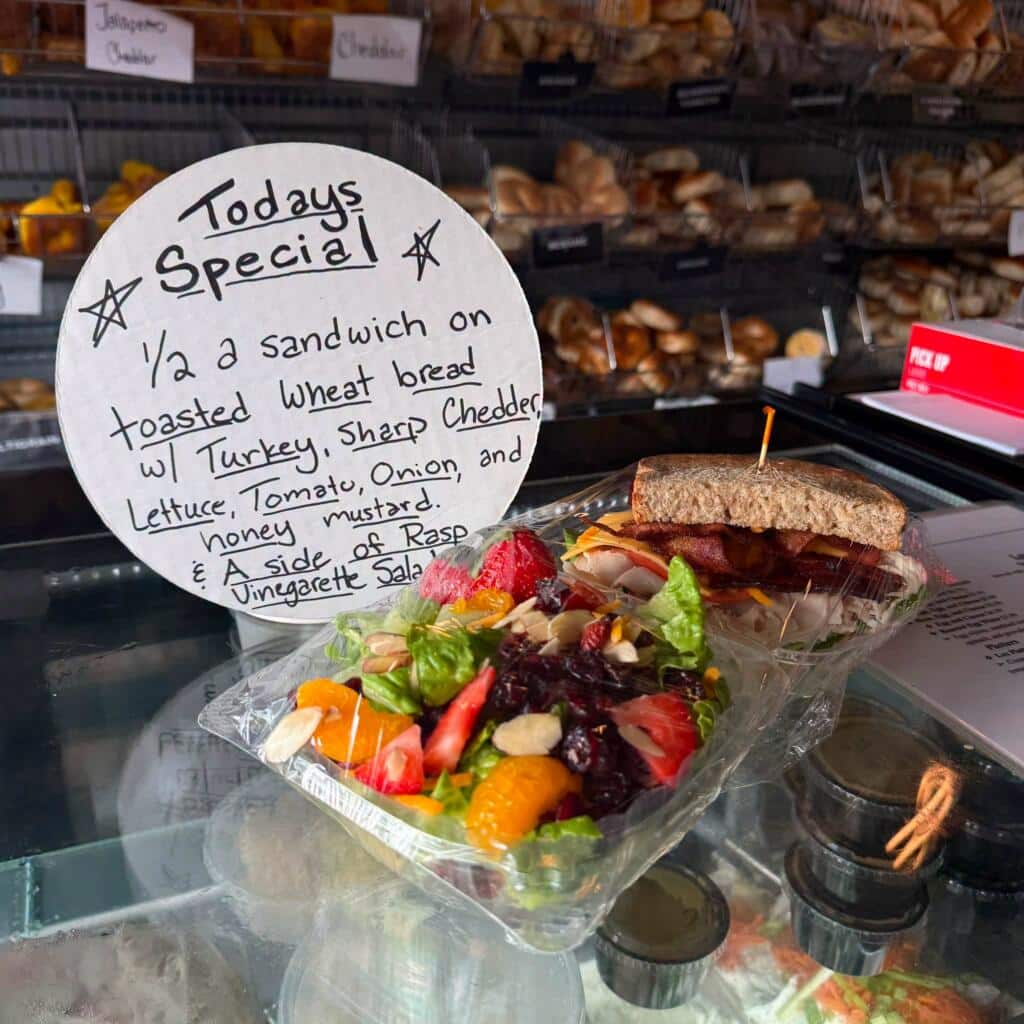 Jalapeno
Cheddar
Cheddar
Todays
Special
1/2 a sandwich on
toasted wheat bread
w/ Turkey, sharp Chedder,
Lettuce, Tomato, Onion, and
honey mustard.
& A side of Rasp
Vinegarette Sala
PICK UP